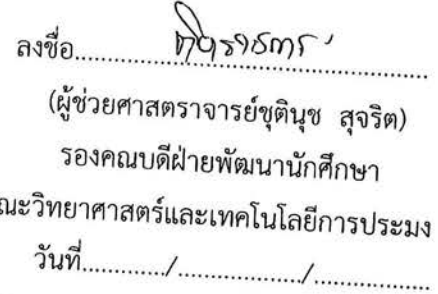 ลงชื่อ........................................
(ผู้ช่วยศาสตราจารย์ชุตินุช สุจริต)
รองคณบดีฝ่ายพัฒนานักศึกษา
ณะวิทยาศาสตร์และเทคโนโลยีการประมง
วันที่............/................../.................